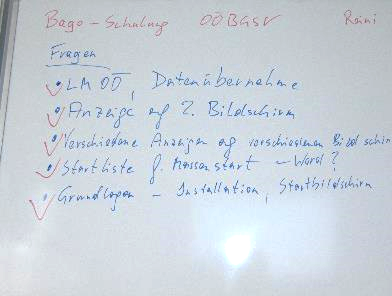 Bago - Schulung OÖBGSV Raini
Fragen
LM OÖ, Datenübernahme
Anzeige auf 2. Bildschirm
Verschiedene Anzeigen auf verschiedenen Bildschirm
Startliste f. Massenstart - Word?
Grundlagen - Installation, Startbildschirm